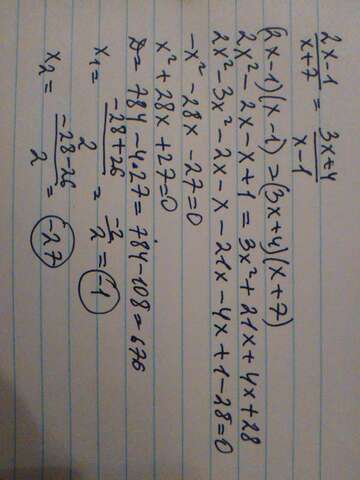 2x-1/x+7 = 3x+4/x-1
(2x-1)(x-1)=(3x+4)(x+7)
2x²-2x-x+1=3x²+21x+4x+28
2x²-3x²-2x-x-21x-4x+1-28=0
-x²-28x-27=0
x²+28x+27=0
D=784-4·27=784-108=676
x₁=-28+26/2=-2/2=-1
x₂=-28-26/2=-27